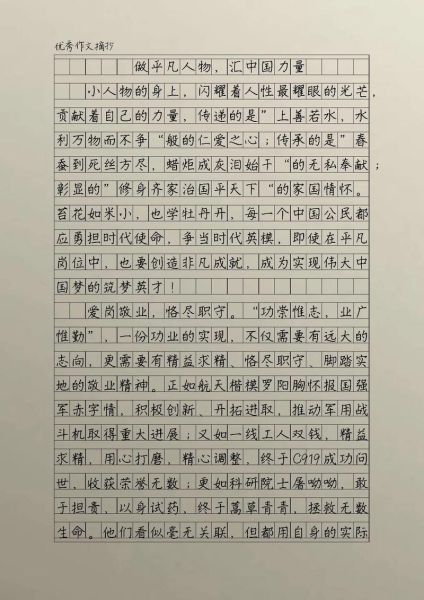 优秀作文摘抄
做平凡人物，汇中国力量
小人物的身上，闪耀着人性最耀眼的光芒，
贡献着自己的力量，传递的是"上善若水，水
利万物而不争"般的仁爱之心；传承的是"春
蚕到死丝方尽，蜡炬成灰泪始干"的无私奉献；
彰显的"修身齐家治国平天下"的家国情怀。
苔花如米小，也学牡丹开，每一个中国公民都
应勇担时代使命，争当时代英模，即使在平凡
岗位中，也要创造非凡成就，成为实现伟大中
国梦的筑梦英才！
爱岗敬业，恪尽职守。"功崇惟志，业广
惟勤"，一份功业的实现，不仅需要有远大的
志向，更需要有精益求精、恪尽职守、脚踏实
地的敬业精神。正如航天楷模罗阳胸怀报国强
军赤字情，积极创新、开拓进取，推动军用战
斗机取得重大进展；又如一线工人双钱，精益
求精，用心打磨，精心调整，终于C919成功问
世，收获荣誉无数；更如科研院士屠呦呦，敢
于担责，以身试药，终于蒿草青青，拯救无数
生命。他们看似毫无关联，但都用自身的实际